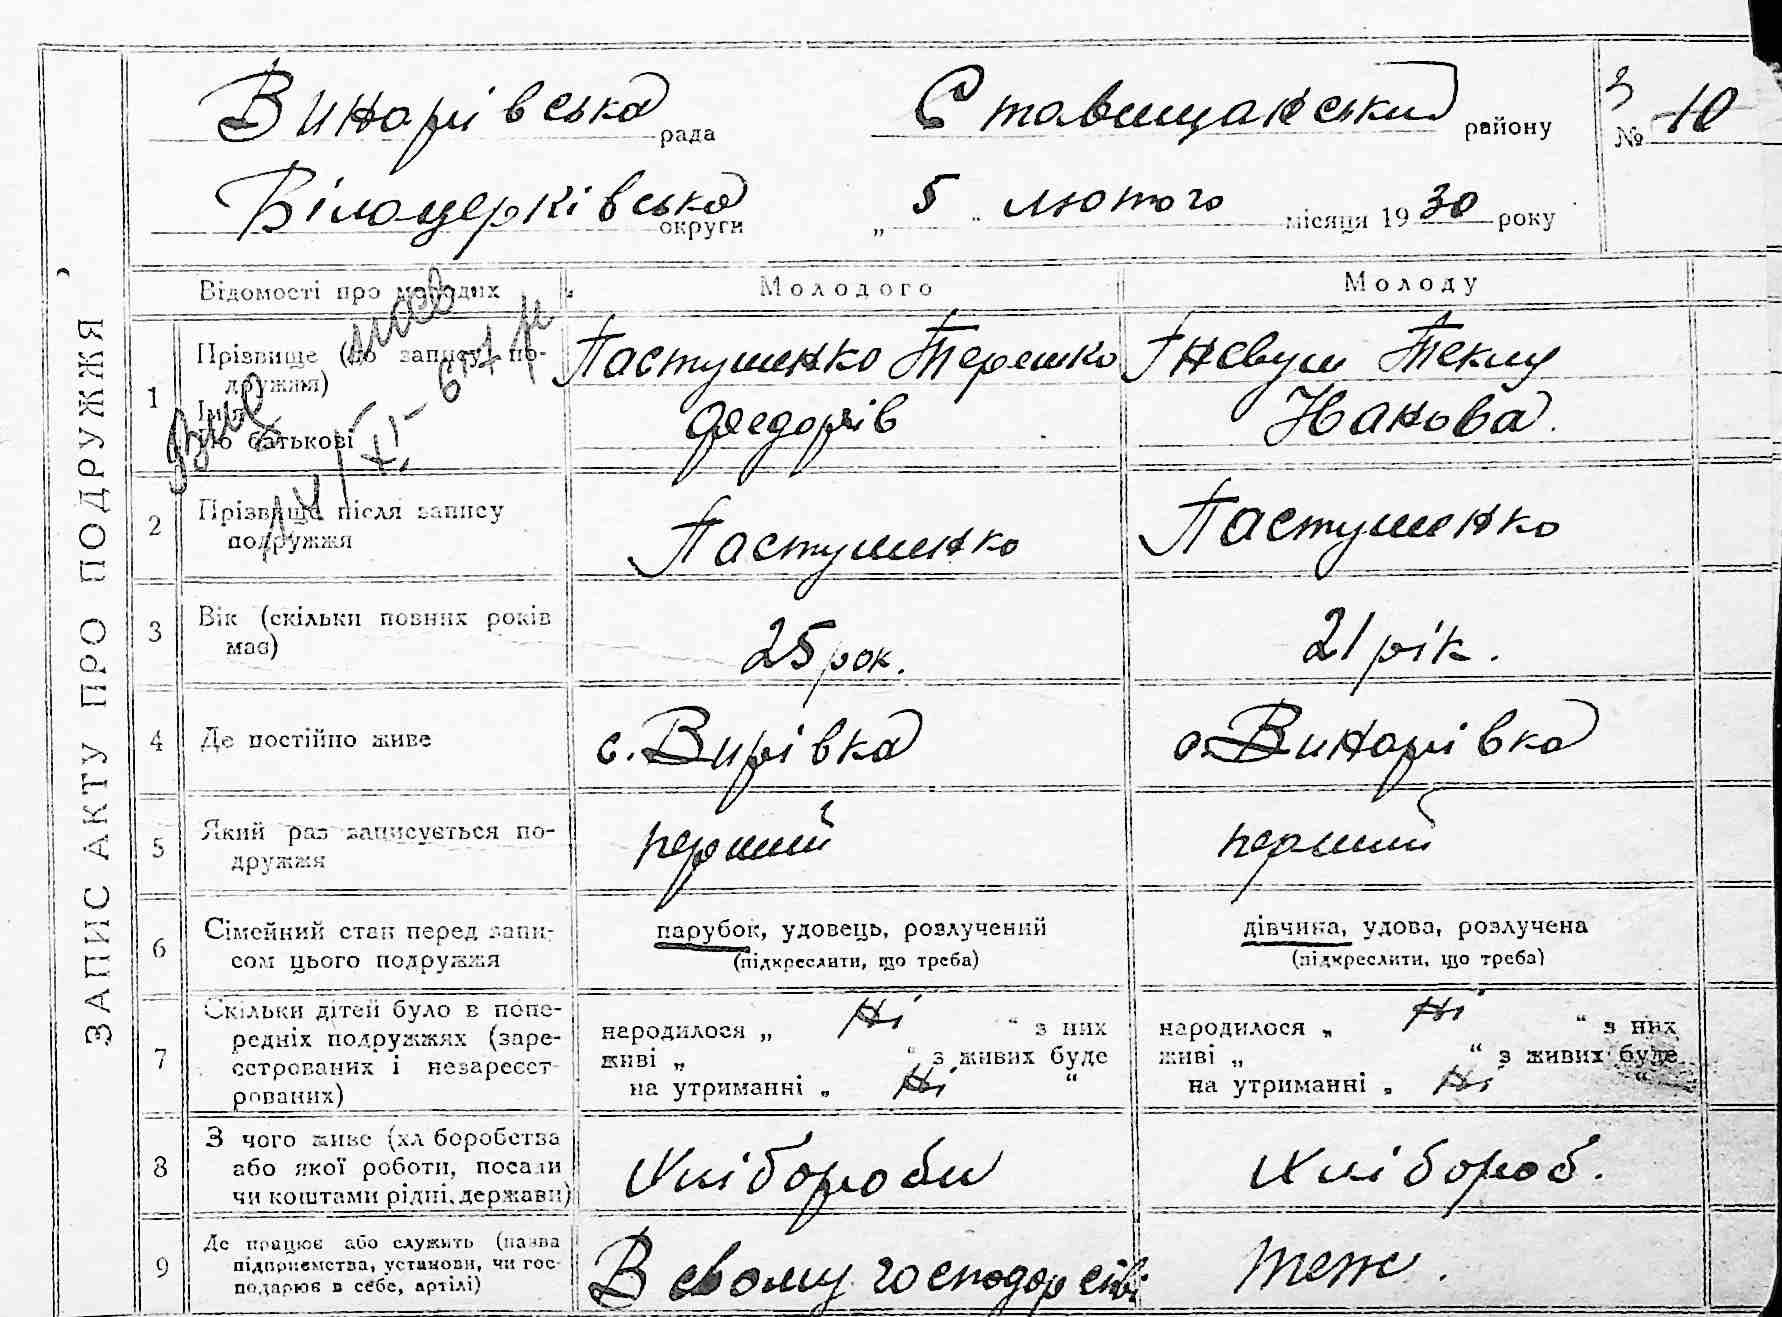 Винарівська рада Ставищанський району 3 № 10
Білоцерківська округи „ 5 " лютого місяця 1930 року
ЗАПИС АКТУ ПРО ПОДРУЖЖЯ
Відомості про молодих Молодого Молоду
1 Прізвище (до запису по- Пастушенко Терешко Гневуш Теклу
дружжя)
Імя Федорів Іванова.
По батькові
2 Прізвище після запису Пастушенко Пастушенко
подружжя
3 Вік (скільки повних років 25 рок. 21 рік.
має)
4 Де постійно живе с. Вирівка с. Винарівка
5 Який раз записується по- перший перший
дружжя
6 Сімейний стан перед запи- парубок, удовець, розлучений дівчина, удова, розлучена
сом цього подружжя (підкреслити, що треба) (підкреслити, що треба)
7 Скільки дітей було в попе- народилося „ Ні " з них народилося „ Ні " з них
редніх подружжях (заре- живі „ " з живих буде живі „ " з живих буде
єстрованих і незареєст- на утриманні „ Ні " на утриманні „ Ні "
рованих)
8 З чого живе (хліборобства Хлібороби Хлібороб.
або якої роботи, посади
чи коштами рідні, держави)
9 Де працює або служить (назва В свому господорстві теж.
підприємства, установи, чи гос-
подарює в себе, артілі)